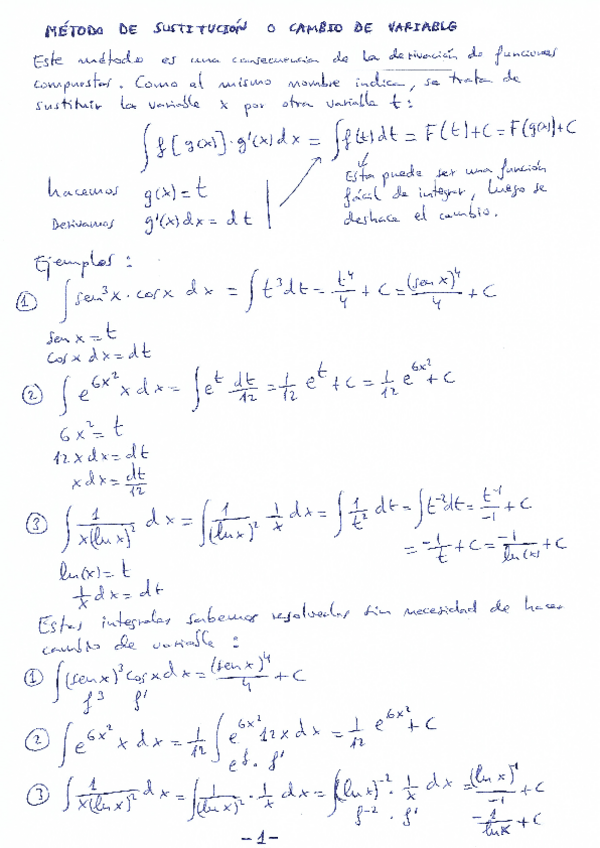 MÉTODO DE SUSTITUCIÓN O CAMBIO DE VARIABLE
Este método es una consecuencia de la derivación de funciones
compuestas. Como el mismo nombre indica, se trata de
sustituir la variable x por otra variable t:
∫f[g(x)]·g'(x)dx = ∫f(t)dt = F(t)+C = F(g(x))+C
hacemos g(x)=t
Derivamos g'(x)dx = dt
Esta puede ser una función
fácil de integrar, luego se
deshace el cambio.
Ejemplos:
① ∫sen³x·cosx dx = ∫t³dt = t⁴/4 + C = (sen x)⁴/4 + C
sen x = t
cos x dx = dt
② ∫e^(6x²) x dx = ∫e^t dt/12 = 1/12 e^t + C = 1/12 e^(6x²) + C
6x² = t
12x dx = dt
x dx = dt/12
③ ∫1/(x(ln x)²) dx = ∫1/(ln x)² 1/x dx = ∫1/t² dt = ∫t⁻²dt = t⁻¹/-1 + C
= -1/t + C = -1/ln(x) + C
ln(x) = t
1/x dx = dt
Estas integrales sabemos resolverlas sin necesidad de hacer
cambio de variable:
① ∫(sen x)³ cos x dx = (sen x)⁴/4 + C
f³ f'
② ∫e^(6x²) x dx = 1/12 ∫e^(6x²) 12x dx = 1/12 e^(6x²) + C
e^f · f'
③ ∫1/(x(ln x)²) dx = ∫1/(ln x)² · 1/x dx = ∫(ln x)⁻² · 1/x dx = (ln x)⁻¹/-1 + C
f⁻² · f'
-1/ln x + C
-1-